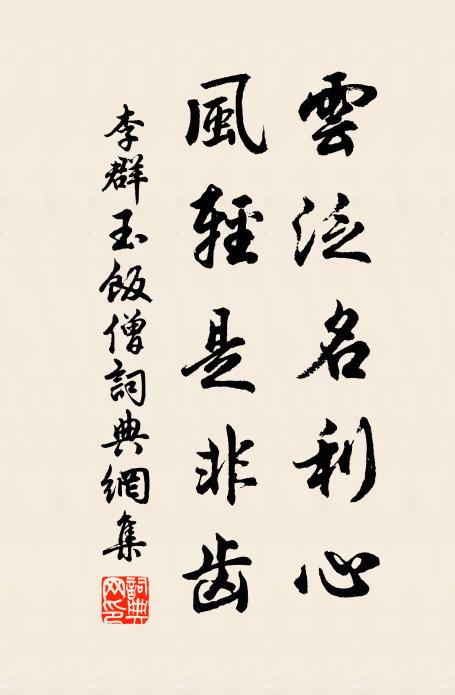 雲泛名利心
風輕是非齿
李群玉飯僧詞典網集
詞典网印